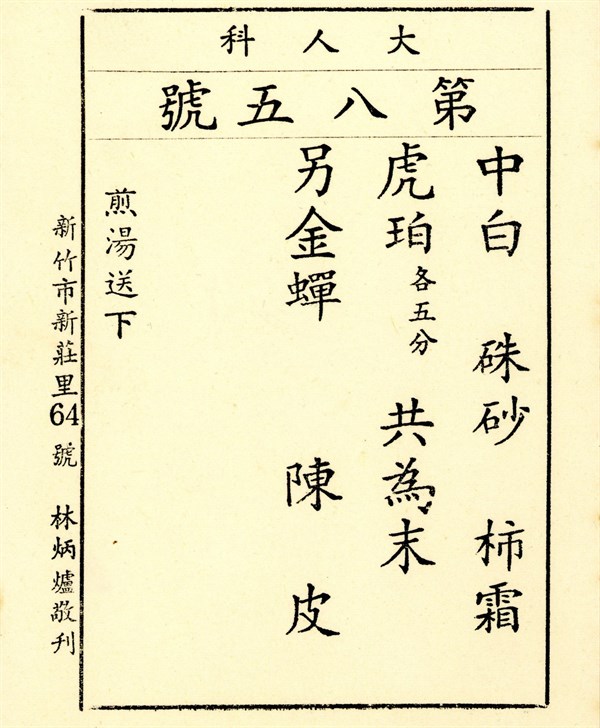 大人科
第八五號
中白　硃砂　柿霜
虎珀各五分　共為末
另金蟬　陳皮
煎湯送下
新竹市新莊里64號　林炳爐敬刊